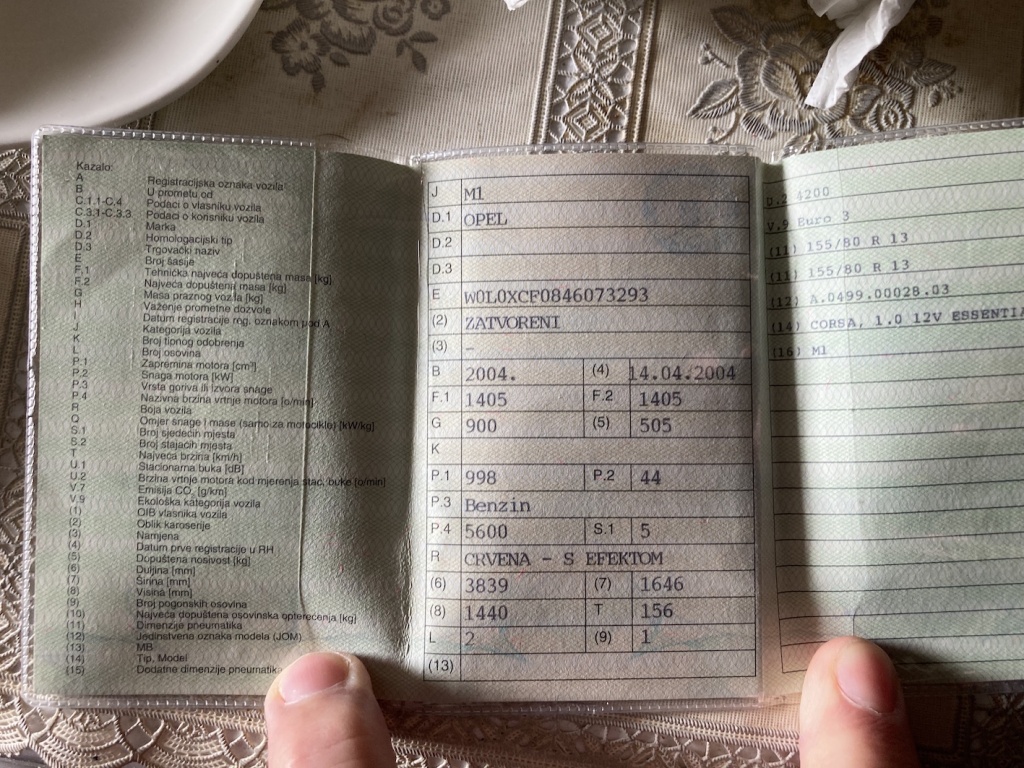 Kazalo:
A Registracijska oznaka vozila
B U prometu od
C.1.1-C.4 Podaci o vlasniku vozila
C.3.1-C.3.3 Podaci o korisniku vozila
D.1 Marka
D.2 Homologacijski tip
D.3 Trgovački naziv
E Broj šasije
F.1 Tehnička najveća dopuštena masa [kg]
F.2 Najveća dopuštena masa [kg]
G Masa praznog vozila [kg]
H Važenje prometne dozvole
I Datum registracije reg. oznakom pod A
J Kategorija vozila
K Broj tipnog odobrenja
L Broj osovina
P.1 Zapremina motora [cm³]
P.2 Snaga motora [kW]
P.3 Vrsta goriva ili izvora snage
P.4 Nazivna brzina vrtnje motora [o/min]
R Boja vozila
Q Omjer snage i mase (samo za motocikle) [kW/kg]
S.1 Broj sjedećih mjesta
S.2 Broj stajaćih mjesta
T Najveća brzina [km/h]
U.1 Stacionarna buka [dB]
U.2 Brzina vrtnje motora kod mjerenja stac. buke [o/min]
V.7 Emisija CO₂ [g/km]
V.9 Ekološka kategorija vozila
(1) OIB vlasnika vozila
(2) Oblik karoserije
(3) Namjena
(4) Datum prve registracije u RH
(5) Dopuštena nosivost [kg]
(6) Duljina [mm]
(7) Širina [mm]
(8) Visina [mm]
(9) Broj pogonskih osovina
(10) Najveća dopuštena osovinska opterećenja [kg]
(11) Dimenzije pneumatika
(12) Jedinstvena oznaka modela (JOM)
(13) MB
(14) Tip, Model
(15) Dodatne dimenzije pneumatik
J M1
D.1 OPEL
D.2
D.3
E W0L0XCF0846073293
(2) ZATVORENI
(3) -
B 2004. (4) 14.04.2004
F.1 1405 F.2 1405
G 900 (5) 505
K
P.1 998 P.2 44
P.3 Benzin
P.4 5600 S.1 5
R CRVENA - S EFEKTOM
(6) 3839 (7) 1646
(8) 1440 T 156
L 2 (9) 1
(13)
D.2 4200
V.9 Euro 3
(11) 155/80 R 13
(11) 155/80 R 13
(12) A.0499.00028.03
(14) CORSA, 1.0 12V ESSENTIA
(16) M1